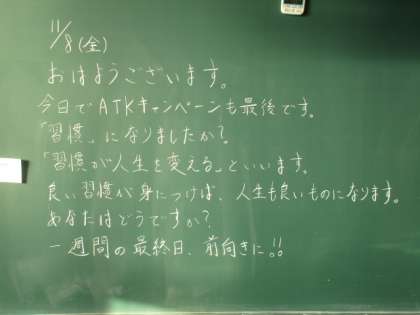 11/8(金)
おはようございます。
今日でATKキャンペーンも最後です。
「習慣」になりましたか?
「習慣が人生を変える」といいます。
良い習慣が身につけば、人生も良いものになります。
あなたはどうですか?
一週間の最終日、前向きに!!